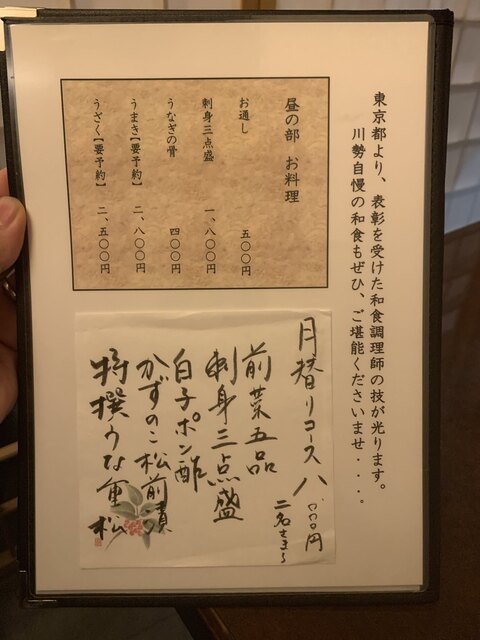 東京都より、表彰を受けた和食調理師の技が光ります。
川勢自慢の和食もぜひ、ご堪能くださいませ・・・。
昼の部　お料理
お通し　五〇〇円
刺身三点盛　一、八〇〇円
うなぎの骨　四〇〇円
うまき【要予約】　二、八〇〇円
うざく【要予約】　二、五〇〇円
月替りコース 八、〇〇〇円
二名さまから
前菜五品
刺身三点盛
白子ポン酢
かずのこ松前漬
特撰うな重 松